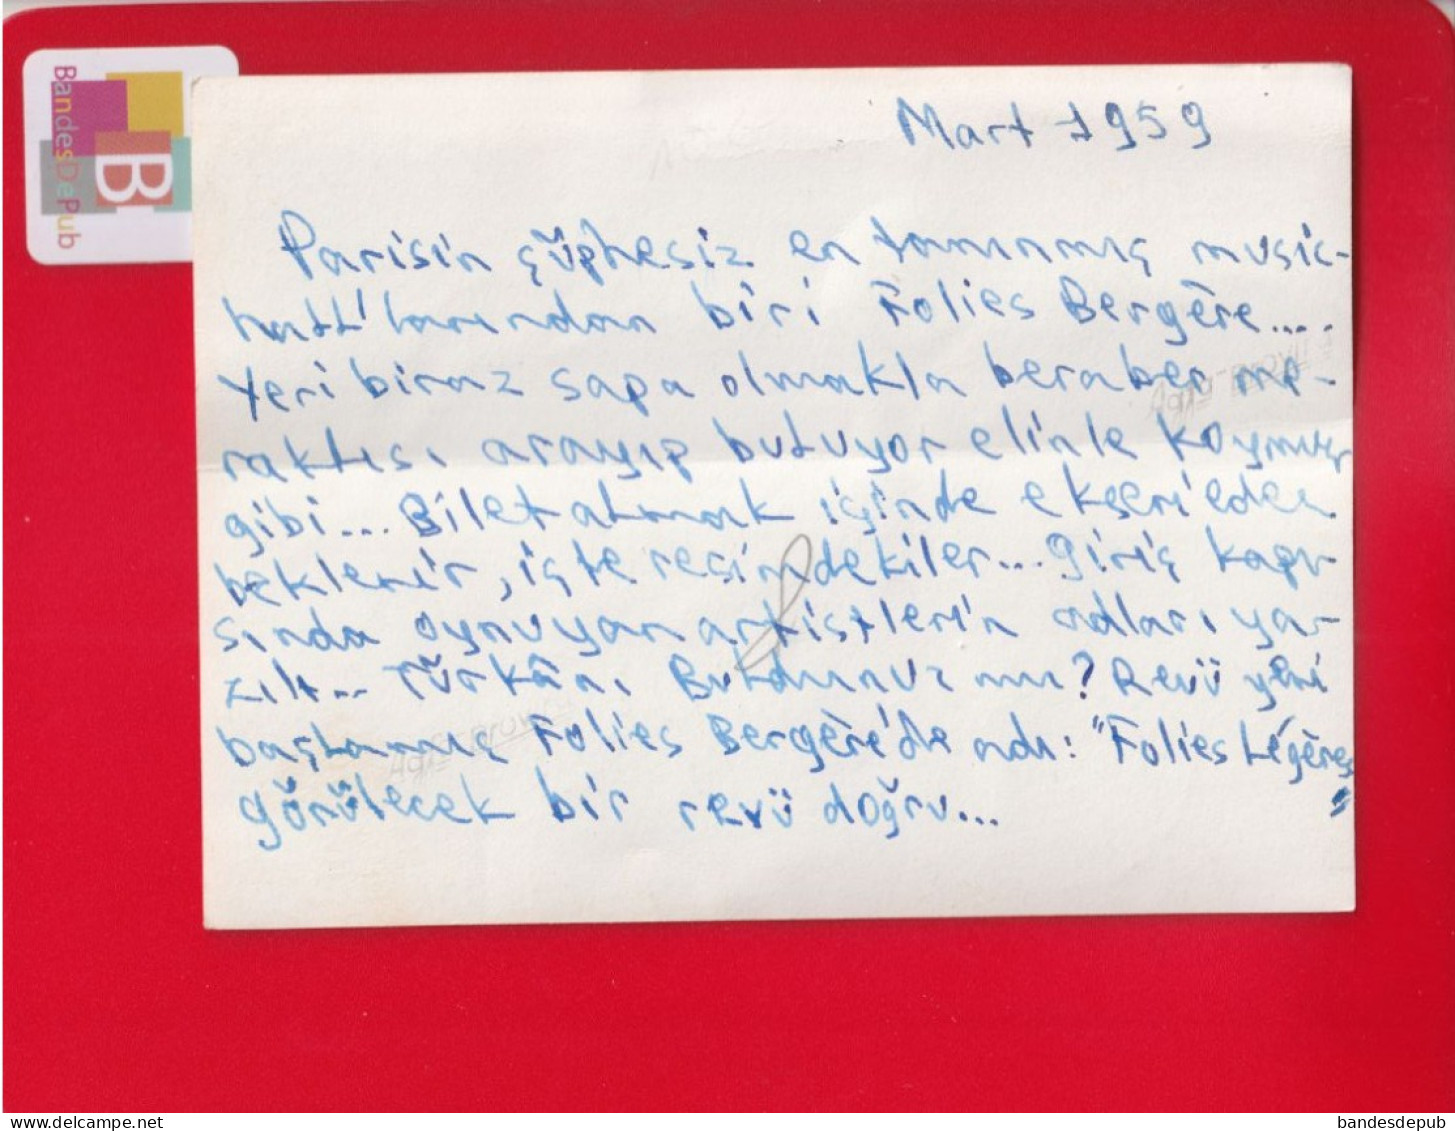 BandesDePub
B
Mart 1959
Parisin şüphesiz en tanınmış music-
hall'larından biri Folies Bergère....
Yeri biraz sapa olmakla beraber me-
raklısı arayıp buluyor elinle koymuş
gibi... Bilet almak içinde ekseri eden
beklenir, işte resimdekiler... Giriş kapı-
sında oynuyan artistlerin adları ya-
zılı... Türkânı Buldunuz mu? Revü yeni
başlamış Folies Bergère'de adı: "Folies Légères
"
görülecek bir revü doğru...
delcampe.net
bandesdepub